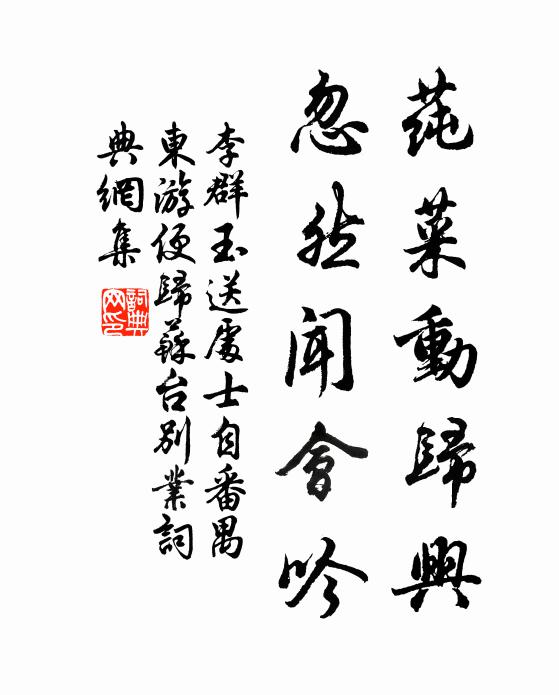 莼菜動歸興
忽然聞會吟
李群玉送處士自番禺
東游便歸蘇台別業詞
典網集
詞典網印